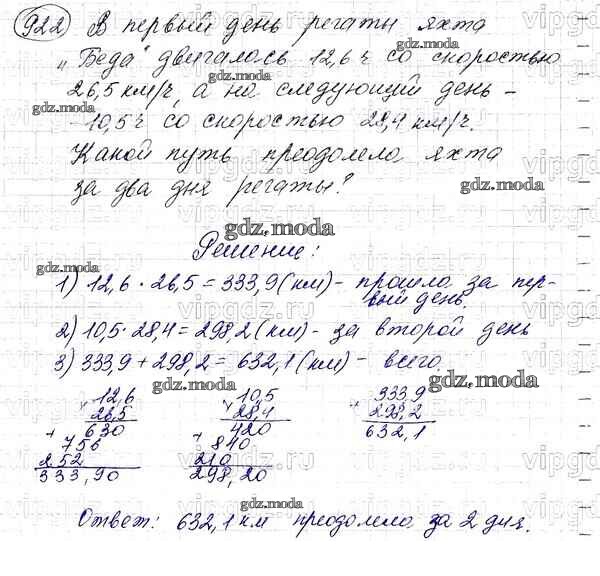 922 В первый день регаты яхта
„Беда" двигалась 12,6 ч со скоростью
gdz.moda
26,5 км/ч, а на следующий день –
gdz.moda
– 10,5 ч со скоростью 28,4 км/ч.
gdz.moda
Какой путь преодолела яхта
за два дня регаты?
gdz.moda
gdz.moda
Решение:
gdz.moda
1) 12,6 · 26,5 = 333,9 (км) – прошла за пер-
вый день.
2) 10,5 · 28,4 = 298,2 (км) – за второй день
3) 333,9 + 298,2 = 632,1 (км) – всего.
gdz.moda
gdz.moda
12,6 10,5 333,9
26,5 28,4 298,2
630 420 632,1
+ 756 + 840
252 210
333,90 298,20
gdz.moda
gdz.moda
Ответ: 632,1 км преодолела за 2 дня.
vipgdz.ru